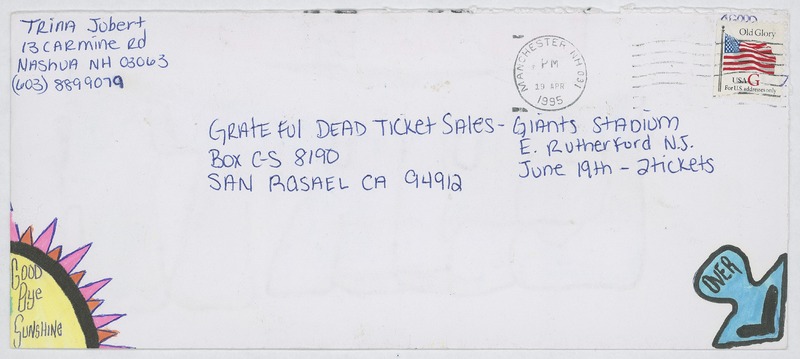 Trina Jobert
13 Carmine Rd
Nashua NH 03063
(603) 8899079
MANCHESTER NH 031
PM
29 APR
1995
Old Glory
USA G
For U.S. addresses only
Grateful Dead Ticket Sales - Giants Stadium
Box C-S 8190 E. Rutherford N.J.
San Rasael CA 94912 June 19th - 2 tickets
Good
Bye
Sunshine
OVER